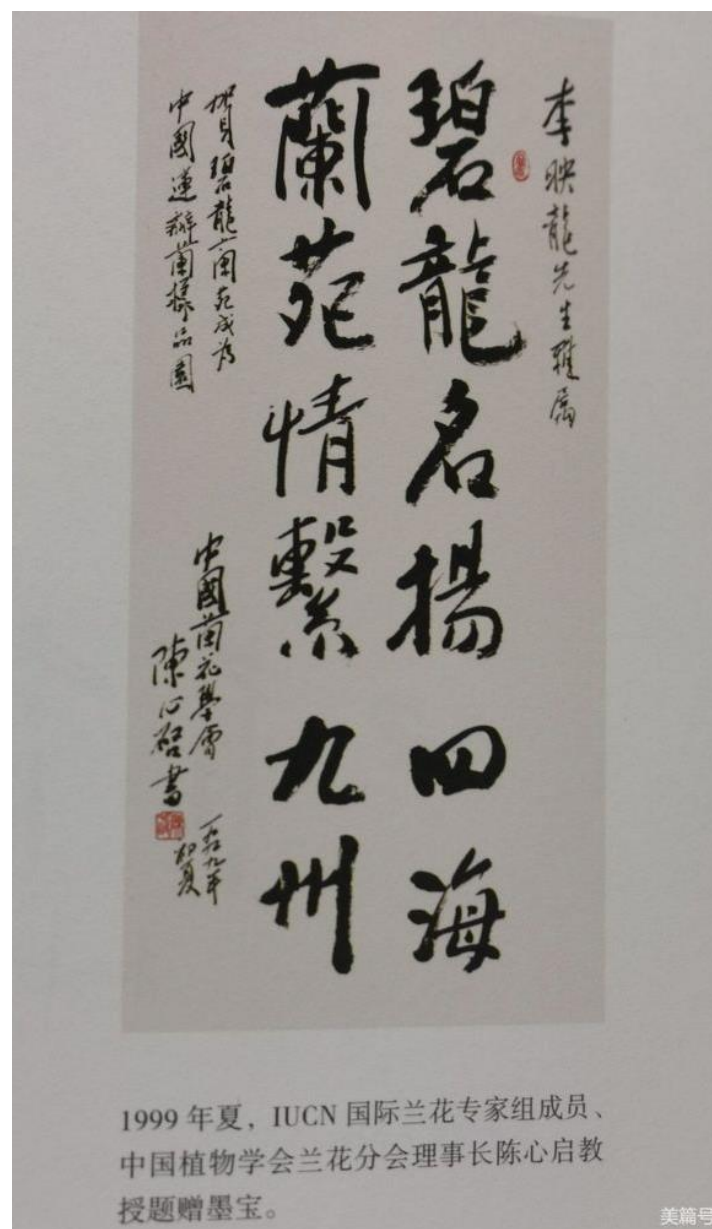 李映龍先生雅屬
碧龍名揚四海
蘭苑情繫九州
賀碧龍蘭苑成為
中國蓮瓣蘭樣品園
中國蘭花學會
陳心啟書
一九九九年
初夏
1999 年夏，IUCN 国际兰花专家组成员、
中国植物学会兰花分会理事长陈心启教
授题赠墨宝。
美篇号